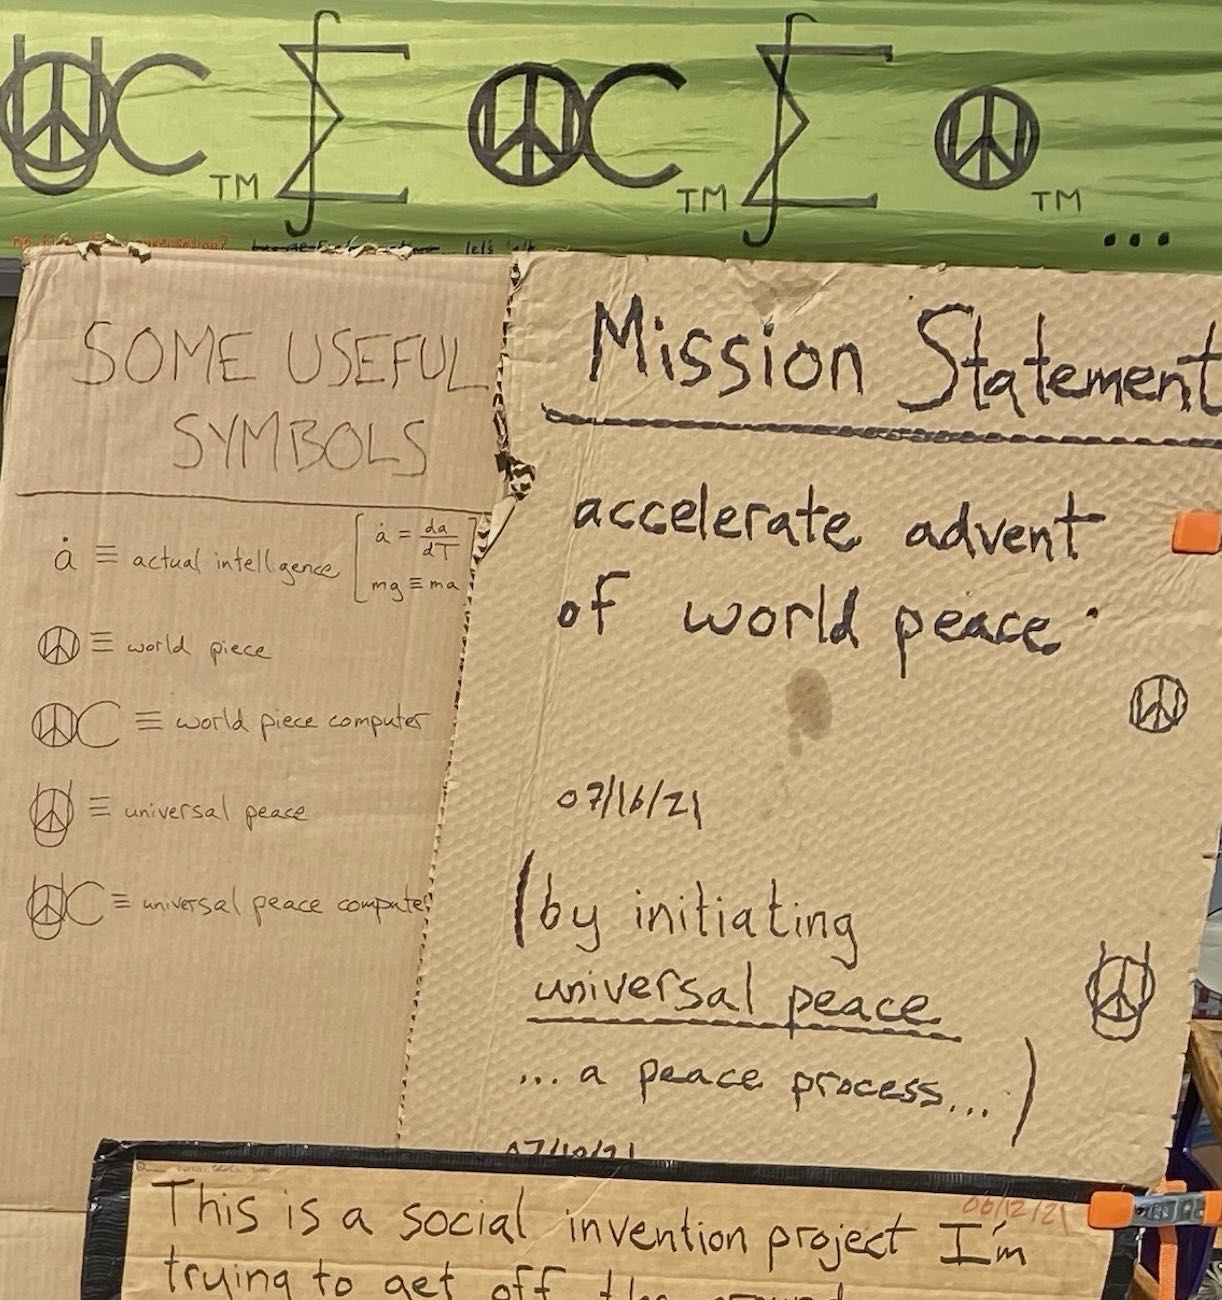 C TM C TM TM ...
let's talk
SOME USEFUL
SYMBOLS
ȧ ≡ actual intelligence [ȧ = da/dT
mg ≡ ma]
≡ world piece
C ≡ world piece computer
≡ universal peace
C ≡ universal peace computer
Mission Statement
accelerate advent
of world peace.
07/16/21
(by initiating
universal peace
... a peace process...)
06/12/21
This is a social invention project I'm
trying to get off the ground